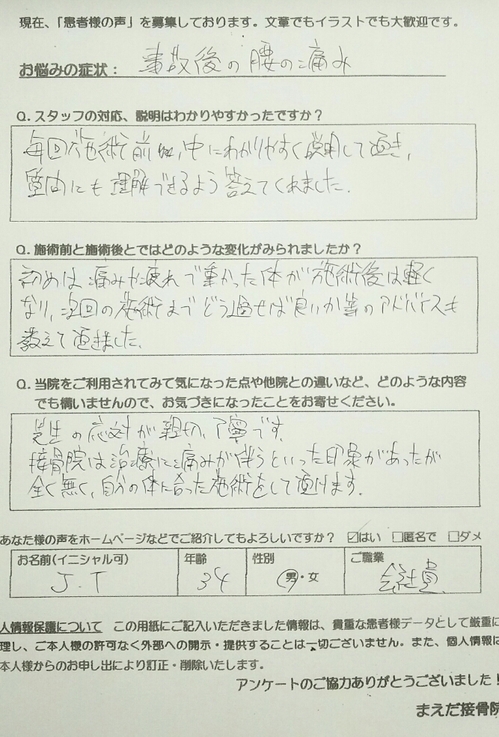 現在、「患者様の声」を募集しております。文章でもイラストでも大歓迎です。
お悩みの症状： 事故後の腰の痛み
Q. スタッフの対応、説明はわかりやすかったですか？
毎回施術前、中にわかりやすく説明して頂き、
質問にも理解できるよう答えてくれました。
Q. 施術前と施術後とではどのような変化がみられましたか？
初めは痛みか疲れで重かった体が施術後は軽く
なり、次回の施術までどう過せば良いか等のアドバイスも
教えて頂きました。
Q. 当院をご利用されてみて気になった点や他院との違いなど、どのような内容
でも構いませんので、お気づきになったことをお寄せください。
先生の応対が親切、丁寧です。
接骨院は治療に痛みが伴うといった印象があったが
全く無く、自分の体に合った施術をして頂けます。
あなた様の声をホームページなどでご紹介してもよろしいですか？ ☑はい □匿名で □ダメ
お名前(イニシャル可) 年齢 性別 ご職業
J.T 34 男・女 会社員
人情報保護について この用紙にご記入いただきました情報は、貴重な患者様データとして厳重に
理し、ご本人様の許可なく外部への開示・提供することは一切ございません。また、個人情報は
本人様からのお申し出により訂正・削除いたします。
アンケートのご協力ありがとうございました！
まえだ接骨院